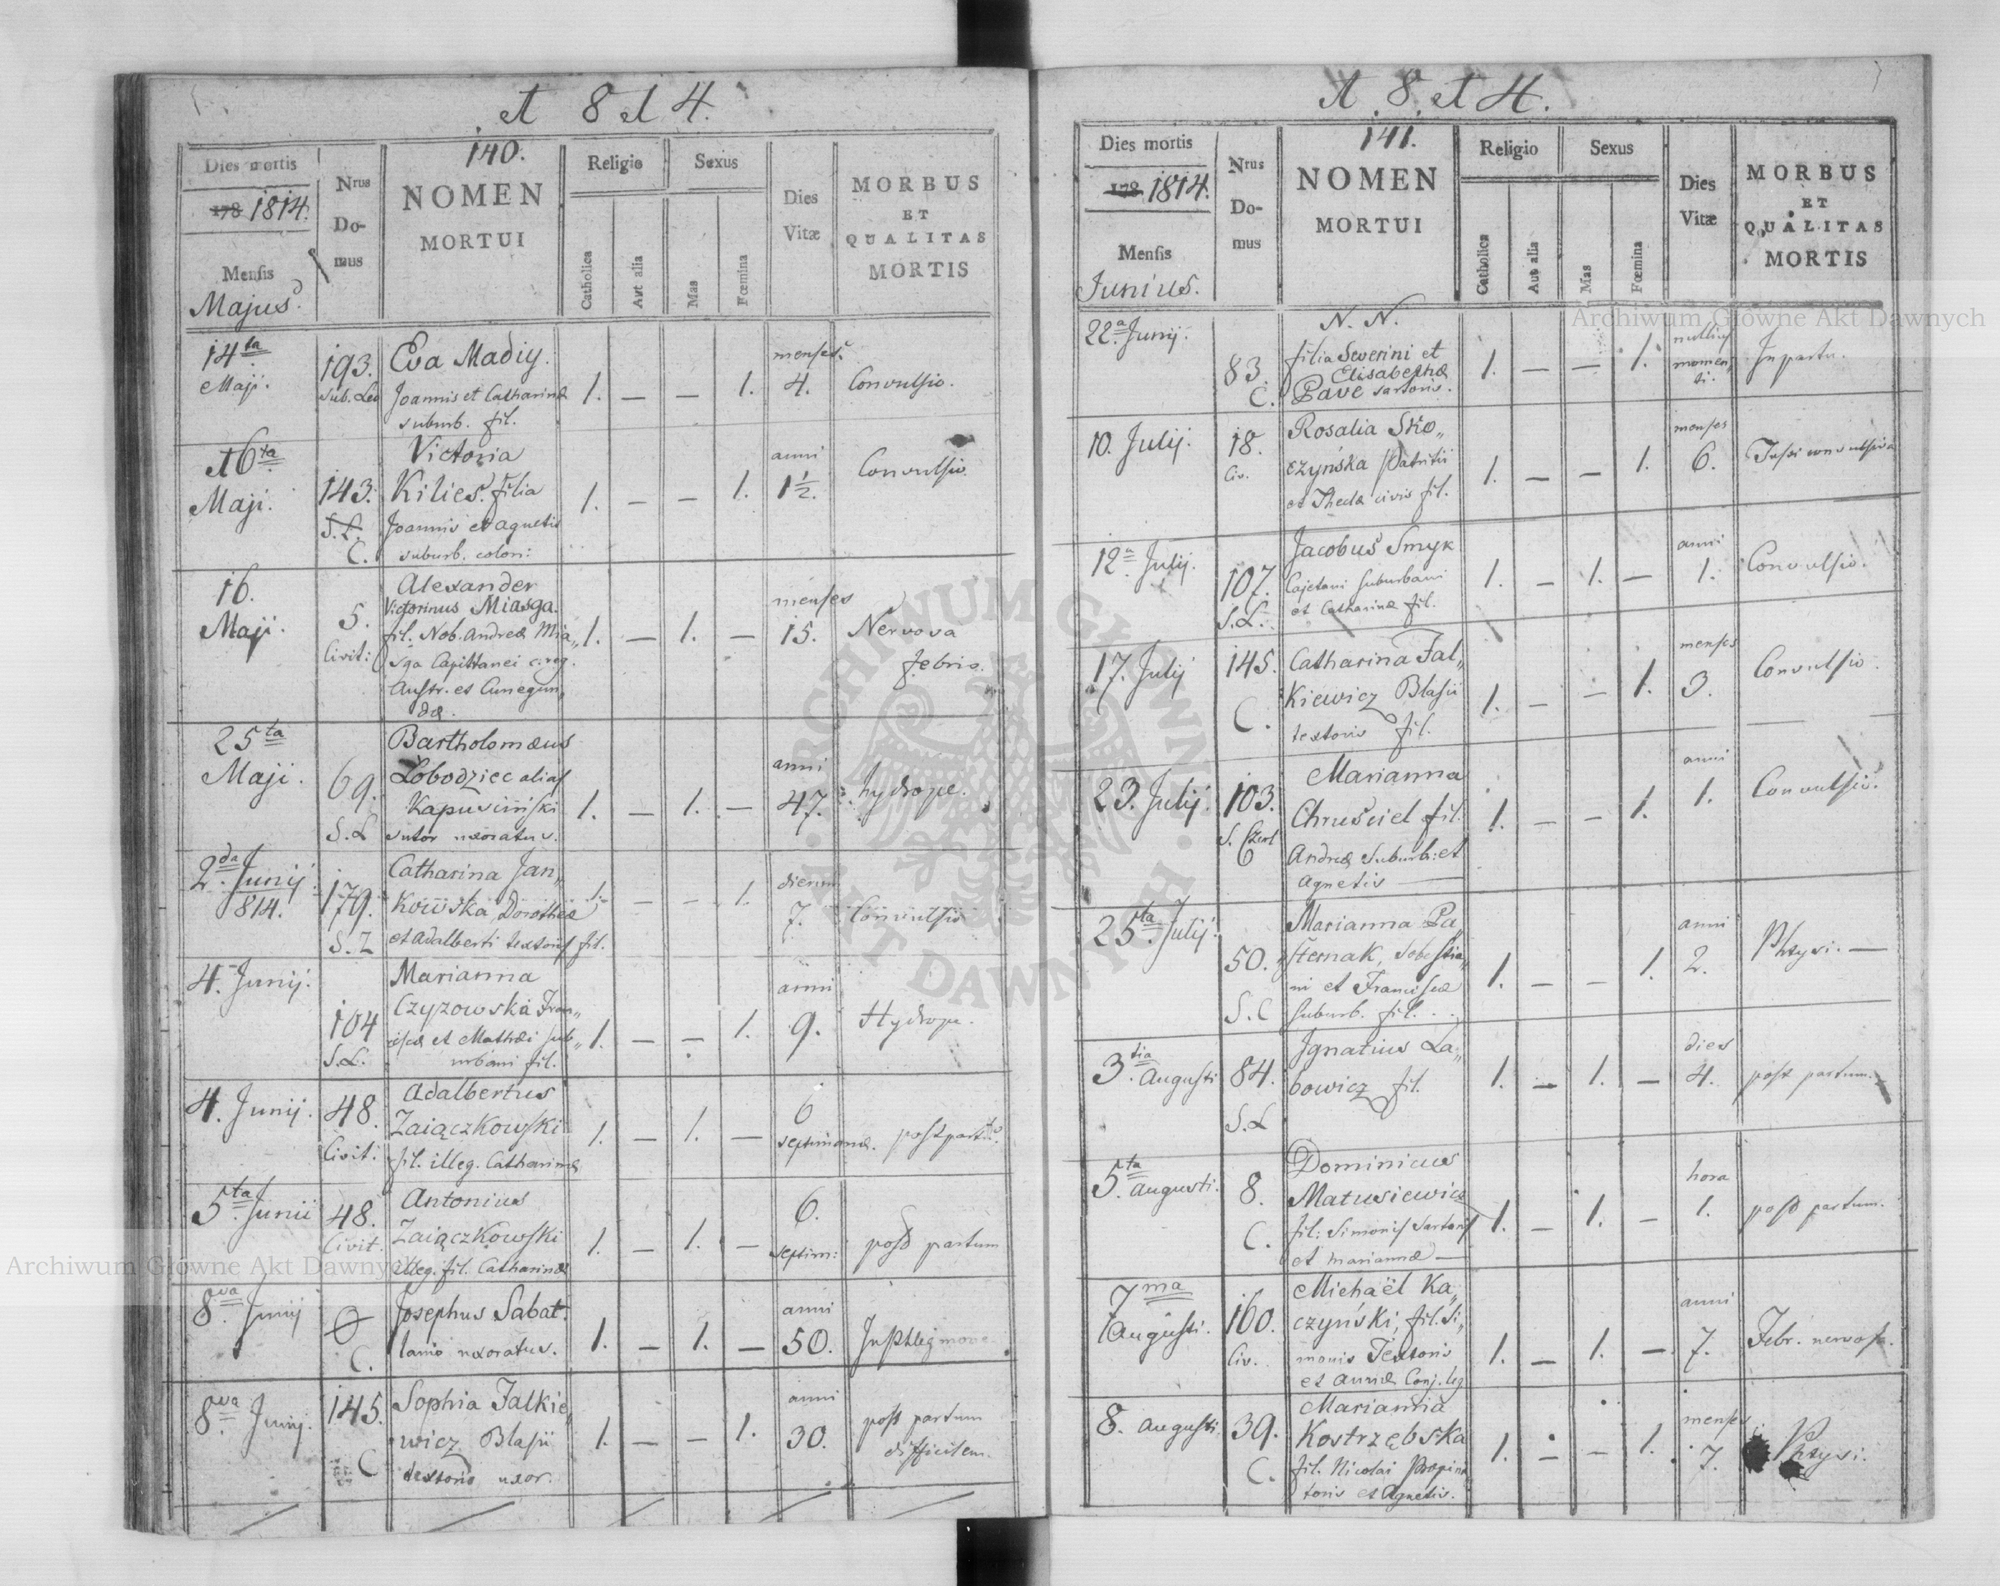 A 8 et 4.
140.
Dies mortis
178 1814.
Mensis
Majus.
Nrus
Do-
mus
NOMEN
MORTUI
Religio
Catholica
Aut alia
Sexus
Mas
Fœmina
Dies
Vitæ
MORBUS
ET
QUALITAS
MORTIS
14ta
Maji.
193.
Sub. Leo
Eva Madiy.
Joannis et Catharinæ
suburb. fil.
1. — — 1.
menses
4.
Convulsio.
16ta
Maji.
143.
S. L.
C.
Victoria
Kilies. filia
Joannis et Agnetis
suburb. colon:
1. — — 1.
anni
1 1/2.
Convulsio
16.
Maji.
5.
Civit:
Alexander
Victorinus Miasga.
fil. Nob. Andreæ Mia„
sga Capittanei c. reg.
Austr. et Cunegun„
dæ.
1. — 1. —
menses
15.
Nervosa
febris.
25ta
Maji.
69.
S. L
Bartholomæus
Łobodziec alias
Kapuściński
sutor uxoratus.
1. — 1. —
anni
47.
hydrope.
2da Junij.
814.
179.
S. L
Catharina Jan„
Kowska, Dorotheæ
et Adalberti textoris fil.
1. — — 1.
dierum
7.
Convulsio
4. Junij.
104
S. L.
Marianna
Czyzowska Fran„
ciscæ et Mathæi sub„
urbani fil.
1. — — 1.
anni
9.
Hydrope.
4. Junij.
48.
Civit:
Adalbertus
Zaiączkowski
fil. illeg. Catharinæ
1. — 1. —
6
septimanæ.
post partu.
5ta Junii
48.
Civit.
Antonius
Zaiączkowski
illeg. fil. Catharinæ
1. — 1. —
6.
septim:
post partum
8va Junij
0
C.
Josephus Sabat.
lanio uxoratus.
1. — 1. —
anni
50.
8va Junij.
145.
C
Sophia Falkie„
wicz Blasii
textoris uxor.
1. — — 1.
anni
30.
post partum
difficilem.
A 8 et 4.
141.
Dies mortis
178 1814.
Mensis
Junius.
Nrus
Do-
mus
NOMEN
MORTUI
Religio
Catholica
Aut alia
Sexus
Mas
Fœmina
Dies
Vitæ
MORBUS
ET
QUALITAS
MORTIS
22a Junij.
83.
C.
N. N.
filia Severini et
Elisabethæ
Pave sartoris.
1. — — 1.
nullius
momen„
ti.
In partu.
10. Julij.
18.
Civ.
Rosalia Sko„
czyńska Patritii
et Theclæ civis fil.
1. — — 1.
menses
6.
Tussi convulsiva
12a Julij.
107.
S. L.
Jacobus Smyk
Cajetani suburbani
et Catharinæ fil.
1. — 1. —
anni
1.
Convulsio.
17. Julij
145.
C.
Catharina Fal„
Kiewicz Blasii
textoris fil.
1. — — 1.
menses
3.
Convulsio.
23. Julij.
103.
Marianna
Chruściel fil.
Andreæ suburb: et
Agnetis —
1. — — 1.
anni
1.
Convulsio.
25ta Julij.
50.
S. C
Marianna Pa„
sternak, Sebastia„
ni et Franciscæ
suburb. fil. . .
1. — — 1.
anni
2.
Phtysi. —
3tia Augusti
84.
S. L
Ignatius La„
bowicz fil.
1. — 1. —
dies
4.
post partum.
5ta Augusti.
8.
C.
Dominicus
Matusiewicz
fil: Simonis Sartoris
et Mariannæ —
1. — 1. —
hora
1.
post partum.
7ma
Augusti.
160.
Civ.
Michaël Ka„
czyński, fil. Si„
monis Textoris
et Annæ Conj. leg
1. — 1. —
anni
7.
Febr. nervosa.
8. Augusti
39.
C.
Marianna
Kostrzębska
fil. Nicolai Propina„
toris et Agnetis.
1. — — 1.
menses
7.
Phtysi.
Archiwum Główne Akt Dawnych
Archiwum Główne Akt Dawnych
ARCHIWUM GŁÓWNE AKT DAWNYCH